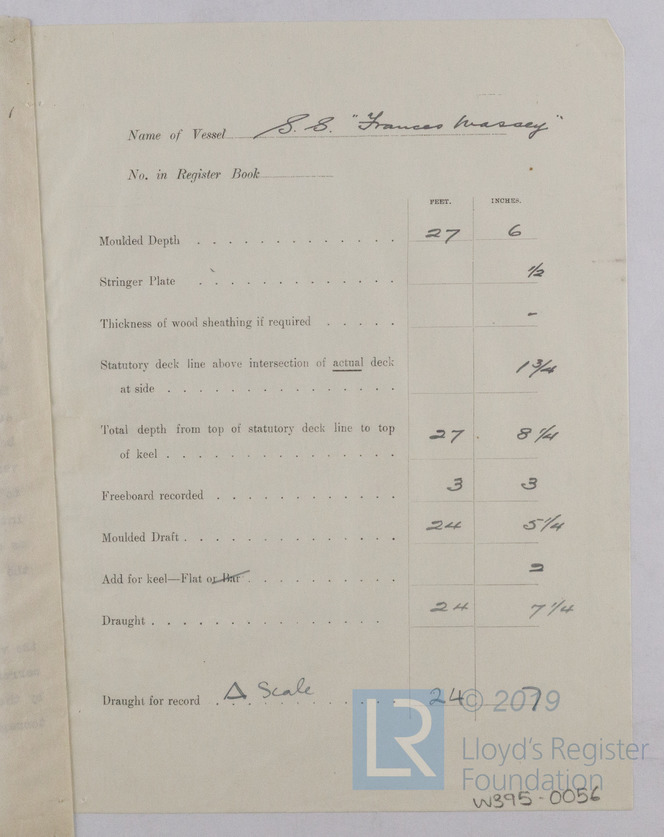 Name of Vessel S. S. "Frances Massey"
No. in Register Book
FEET. INCHES.
Moulded Depth . . . . . . . . . . . . 27 6
Stringer Plate . . . . . . . . . . . . 1/2
Thickness of wood sheathing if required . . . . . -
Statutory deck line above intersection of actual deck
at side . . . . . . . . . . . . . . 1 3/4
Total depth from top of statutory deck line to top
of keel . . . . . . . . . . . . . . 27 . 8 1/4
Freeboard recorded . . . . . . . . . . . 3 3
Moulded Draft . . . . . . . . . . . . . 24 5 1/4
Add for keel—Flat or Bar . . . . . . . . . . 2
Draught . . . . . . . . . . . . . . 24 7 1/4
Draught for record Δ Scale 24 7
© 2019
LR
Lloyd's Register
Foundation
W395-0056